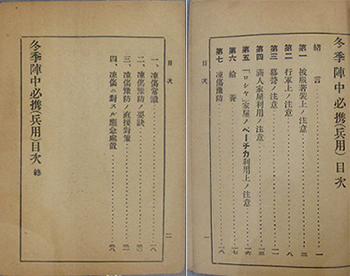 冬季陣中必携(兵用)目次
緒言 一
第一 被服著裝上ノ注意 三
第二 行軍上ノ注意
第三 幕營ノ注意
第四 滿人家屋利用ノ注意
第五 「ロシヤ」家屋ノペーチカ利用上ノ注意
第六 給養
第七 凍傷豫防
目次 一
目次 二
一、凍傷常識
二、凍傷豫防ノ要訣
三、凍傷豫防ノ直接對策
四、凍傷ニ對スル應急處置
冬季陣中必携(兵用)目次 終